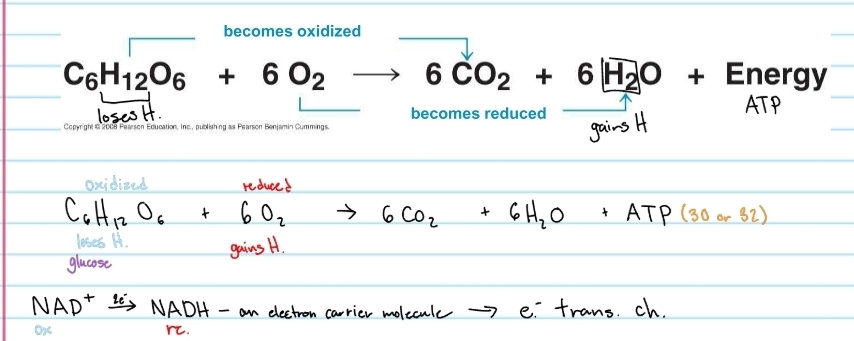 becomes oxidized
C6H12O6 + 6 O2 → 6 CO2 + 6 H2O + Energy
loses H. becomes reduced gains H ATP
Copyright © 2008 Pearson Education, Inc., publishing as Pearson Benjamin Cummings.
oxidized reduced
C6H12O6 + 6 O2 → 6 CO2 + 6 H2O + ATP (30 or 32)
loses H. gains H.
glucose
NAD+ 2e- → NADH - an electron carrier molecule → e.- trans. ch.
ox re.